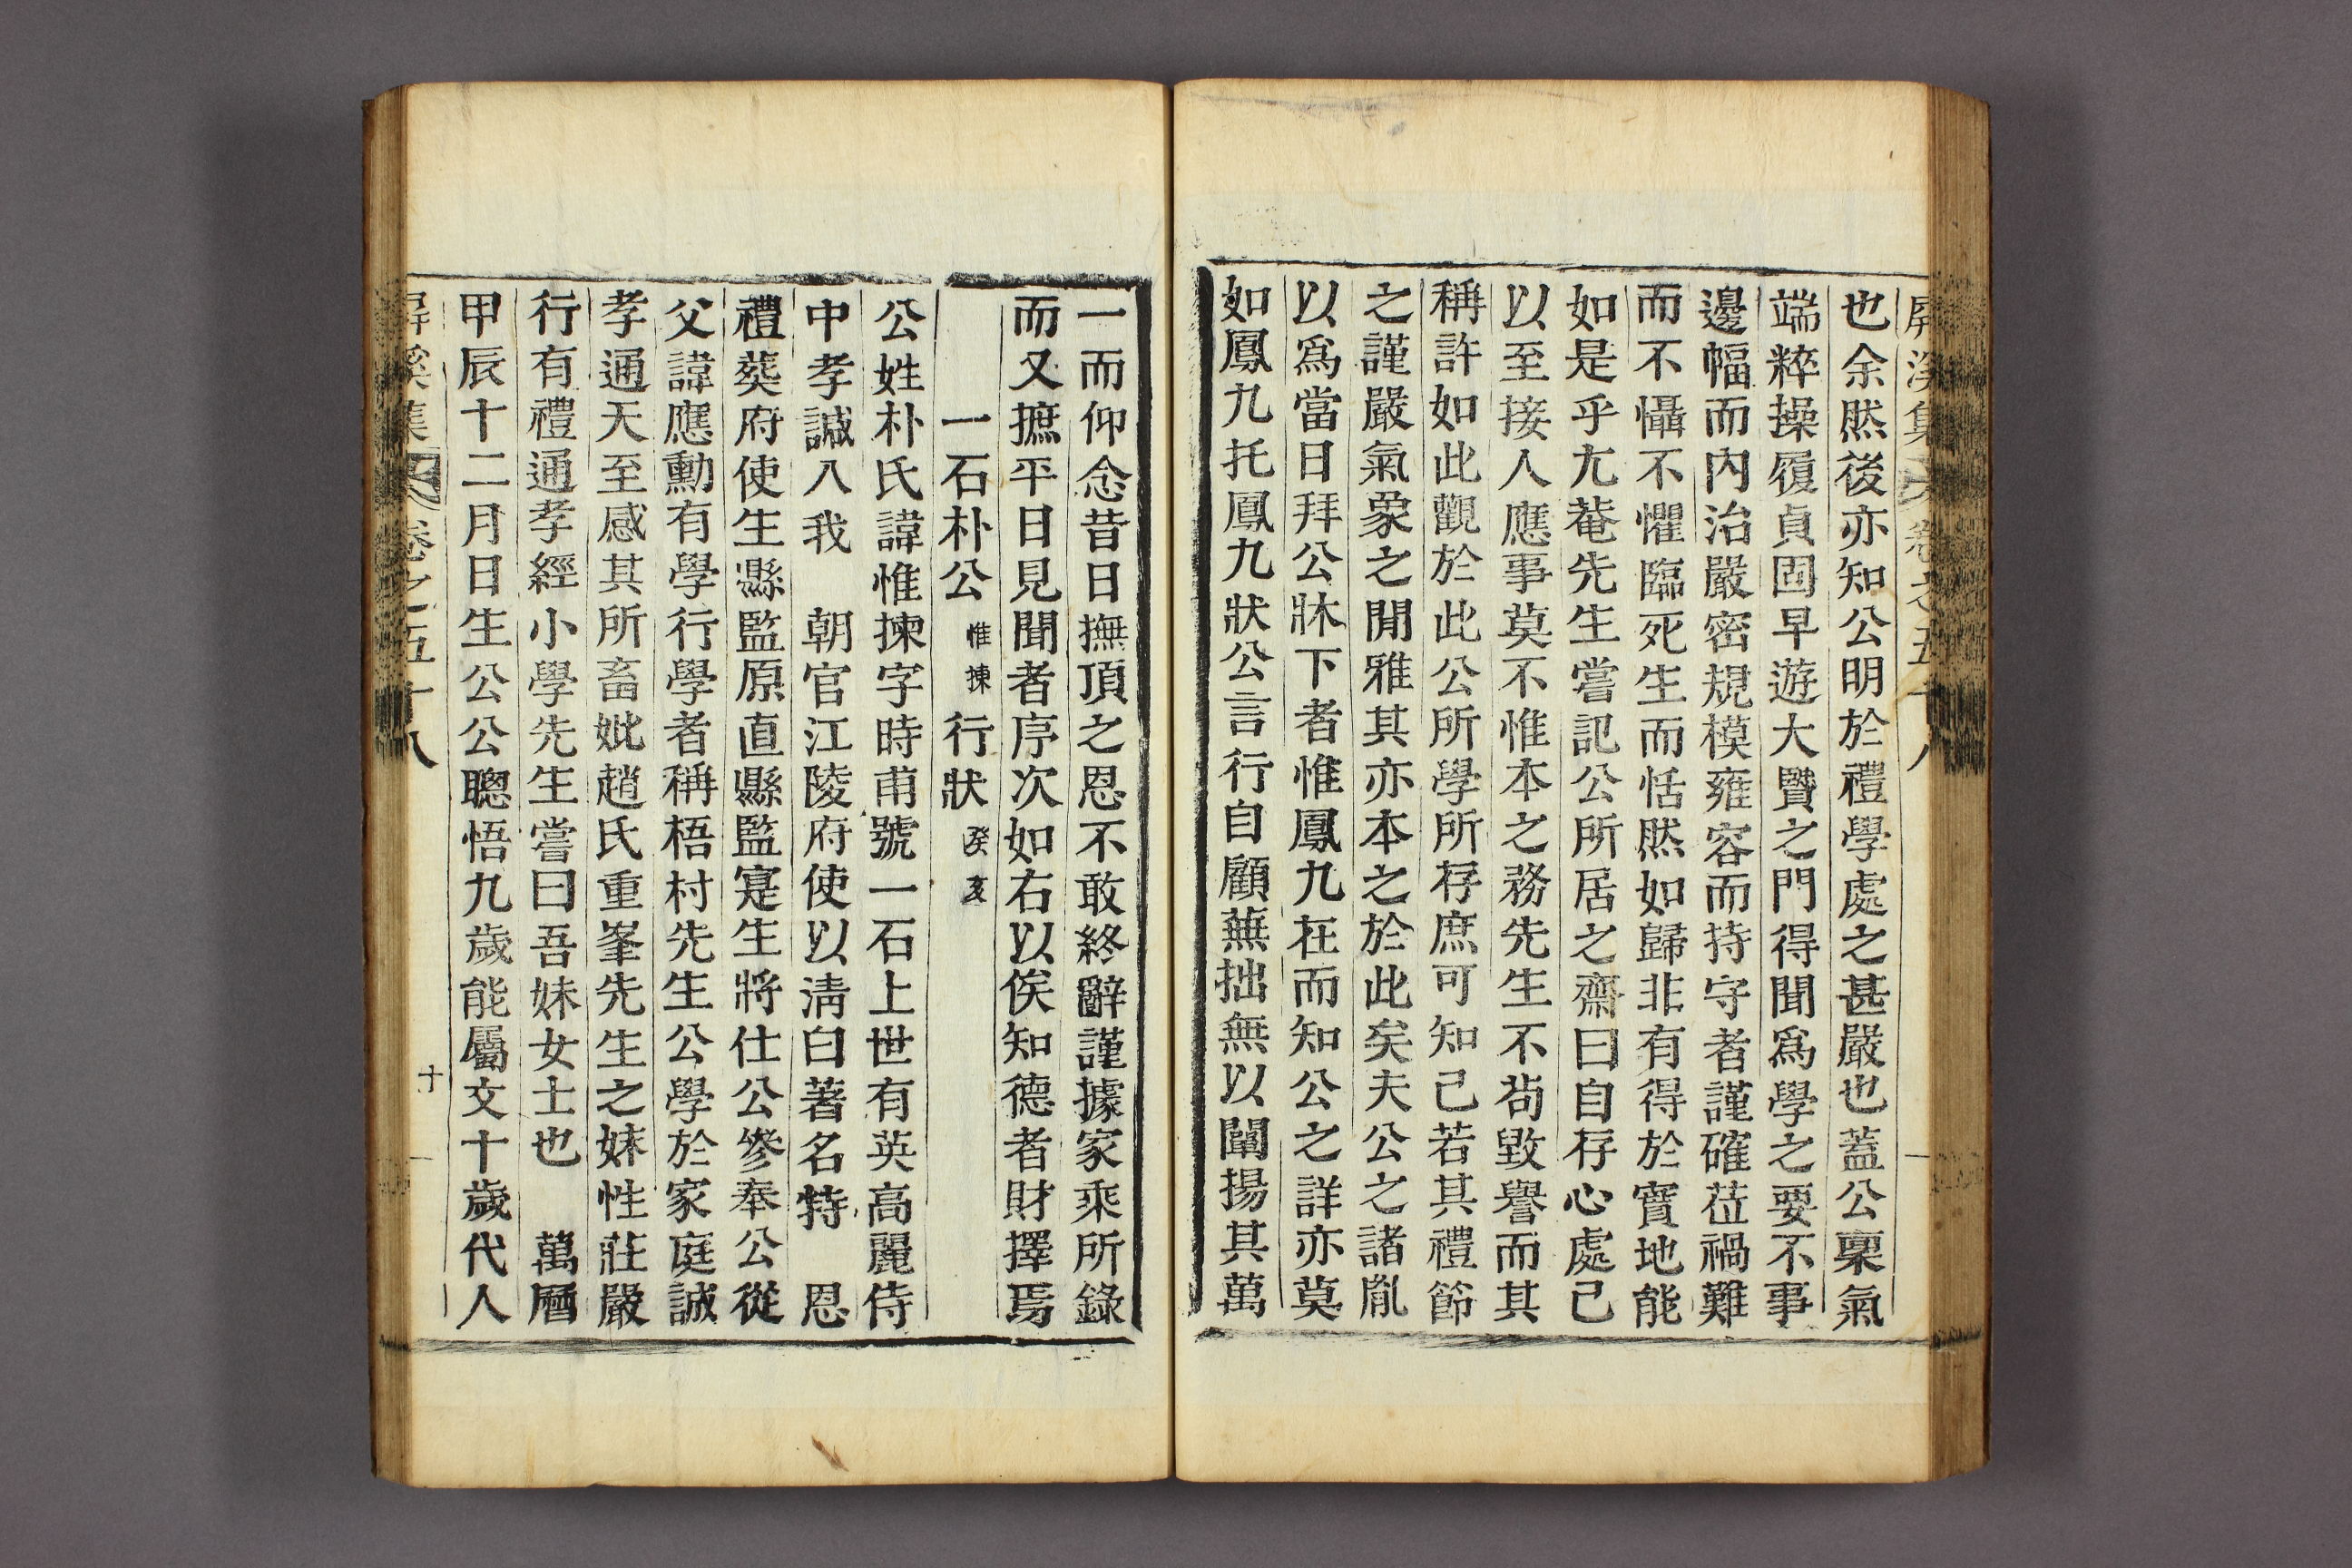 屛溪集 卷之五十八
也余然後亦知公明於禮學處之甚嚴也蓋公稟氣
端粹操履貞固早遊大賢之門得聞爲學之要不事
邊幅而內治嚴密規模雍容而持守者謹確莅禍難
而不懾不懼臨死生而恬然如歸非有得於實地能
如是乎尤菴先生嘗記公所居之齋曰自存心處己
以至接人應事莫不惟本之務先生不苟毀譽而其
稱許如此觀於此公所學所存庶可知己若其禮節
之謹嚴氣象之閒雅其亦本之於此矣夫公之諸胤
以爲當日拜公牀下者惟鳳九在而知公之詳亦莫
如鳳九托鳳九狀公言行自顧蕪拙無以闡揚其萬
一而仰念昔日撫頂之恩不敢終辭謹據家乘所錄
而又摭平日見聞者序次如右以俟知德者財擇焉
一石朴公惟揀行狀癸亥
公姓朴氏諱惟揀字時甫號一石上世有英高麗侍
中孝諴入我 朝官江陵府使以淸白著名特 恩
禮葬府使生縣監原直縣監寔生將仕公參奉公從
父諱應勳有學行學者稱梧村先生公學於家庭誠
孝通天至感其所畜妣趙氏重峯先生之妹性莊嚴
行有禮通孝經小學先生嘗曰吾妹女士也 萬曆
甲辰十二月日生公公聰悟九歲能屬文十歲代人
屛溪集 卷之五十八 十